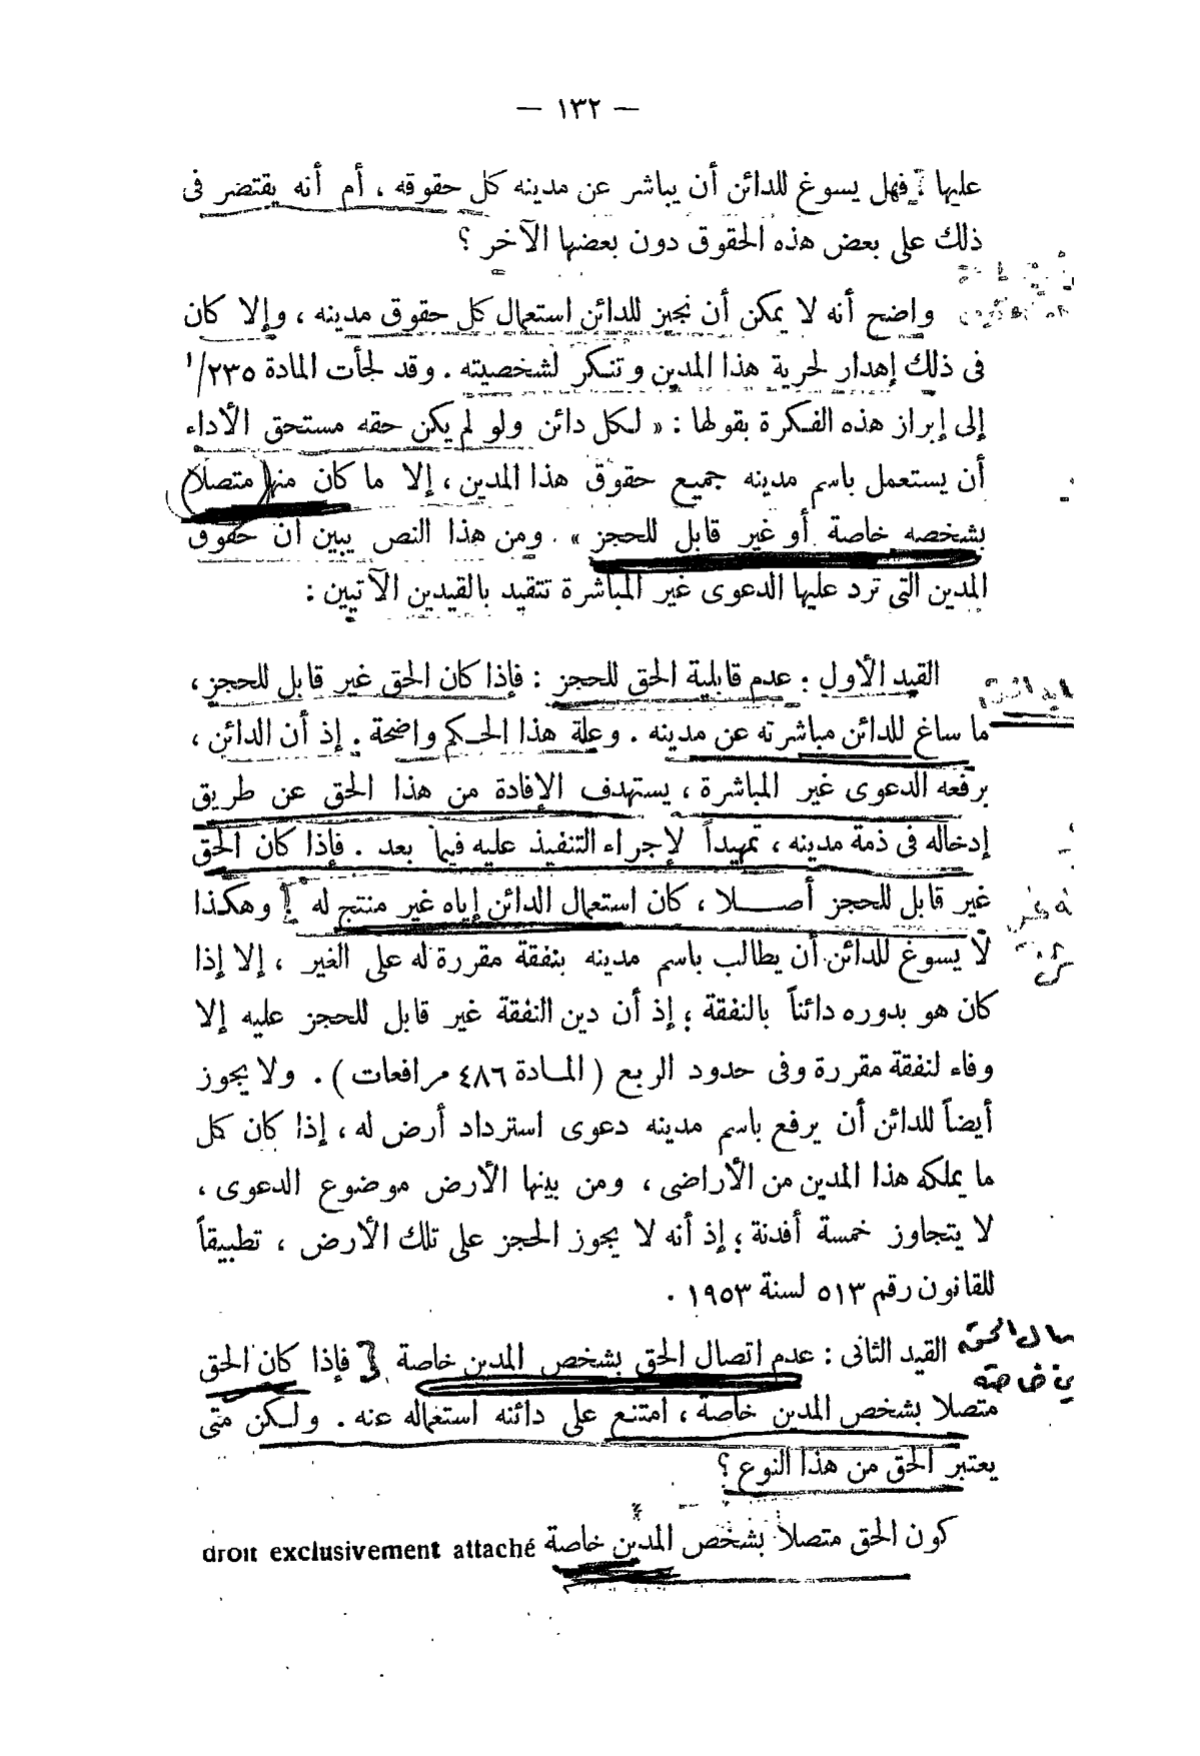 — ١٣٢ —
عليها ؛ فهل يسوغ للدائن أن يباشر عن مدينه كل حقوقه ، أم أنه يقتصر فى
ذلك على بعض هذه الحقوق دون بعضها الآخر ؟
واضح أنه لا يمكن أن نجيز للدائن استعمال كل حقوق مدينه ، وإلا كان
فى ذلك إهدار لحرية هذا المدين وتنكر لشخصيته . وقد لجأت المادة ٢٣٥/١
إلى إبراز هذه الفكرة بقولها : « لكل دائن ولو لم يكن حقه مستحق الأداء
أن يستعمل باسم مدينه جميع حقوق هذا المدين ، إلا ما كان منها متصلا
بشخصه خاصة أو غير قابل للحجز » . ومن هذا النص يبين أن حقوق
المدين التى ترد عليها الدعوى غير المباشرة تتقيد بالقيدين الآتيين :
القيد الأول : عدم قابلية الحق للحجز : فإذا كان الحق غير قابل للحجز ،
ما ساغ للدائن مباشرته عن مدينه . وعلة هذا الحكم واضحة . إذ أن الدائن ،
برفعه الدعوى غير المباشرة ، يستهدف الإفادة من هذا الحق عن طريق
إدخاله فى ذمة مدينه ، تمهيداً لإجراء التنفيذ عليه فيما بعد . فإذا كان الحق
غير قابل للحجز أصلا ، كان استعمال الدائن إياه غير منتج له . وهكذا
لا يسوغ للدائن أن يطالب باسم مدينه بنفقة مقررة له على الغير ، إلا إذا
كان هو بدوره دائناً بالنفقة ؛ إذ أن دين النفقة غير قابل للحجز عليه إلا
وفاء لنفقة مقررة وفى حدود الربع ( المادة ٤٨٦ مرافعات ) . ولا يجوز
أيضاً للدائن أن يرفع باسم مدينه دعوى استرداد أرض له ، إذا كان كل
ما يملكه هذا المدين من الأراضى ، ومن بينها الأرض موضوع الدعوى ،
لا يتجاوز خمسة أفدنة ؛ إذ أنه لا يجوز الحجز على تلك الأرض ، تطبيقاً
للقانون رقم ٥١٣ لسنة ١٩٥٣ .
القيد الثانى : عدم اتصال الحق بشخص المدين خاصة . فإذا كان الحق
متصلا بشخص المدين خاصة ، امتنع على دائنه استعماله عنه . ولكن متى
يعتبر الحق من هذا النوع ؟
كون الحق متصلا بشخص المدين خاصة droit exclusivement attaché